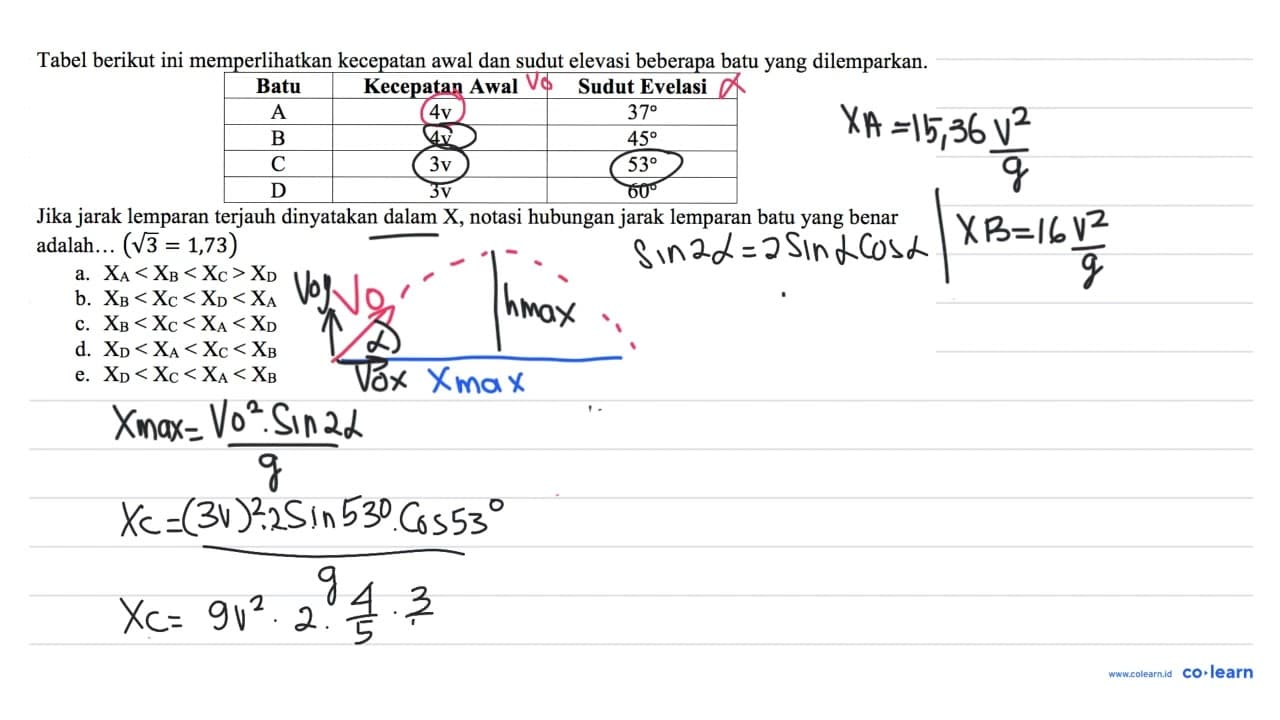 Tabel berikut ini memperlihatkan kecepatan awal dan sudut elevasi beberapa batu yang dilemparkan.
Batu Kecepatan Awal Vo Sudut Evelasi α
A 4v 37°
B 4v 45°
C 3v 53°
D 3v 60°
Jika jarak lemparan terjauh dinyatakan dalam X, notasi hubungan jarak lemparan batu yang benar
adalah... (√3 = 1,73)
a. XA < XB < XC > XD
b. XB < XC < XD < XA
c. XB < XC < XA < XD
d. XD < XA < XC < XB
e. XD < XC < XA < XB
XA = 15,36 v²/g
Sin2α = 2SinαCosα
XB = 16 v²/g
Voy Vo
hmax
α
Vox Xmax
Xmax = Vo².Sin2α
g
XC = (3v)².2Sin53°.Cos53°
g
XC = 9v². 2. 4/5 . 3
www.colearn.id co·learn